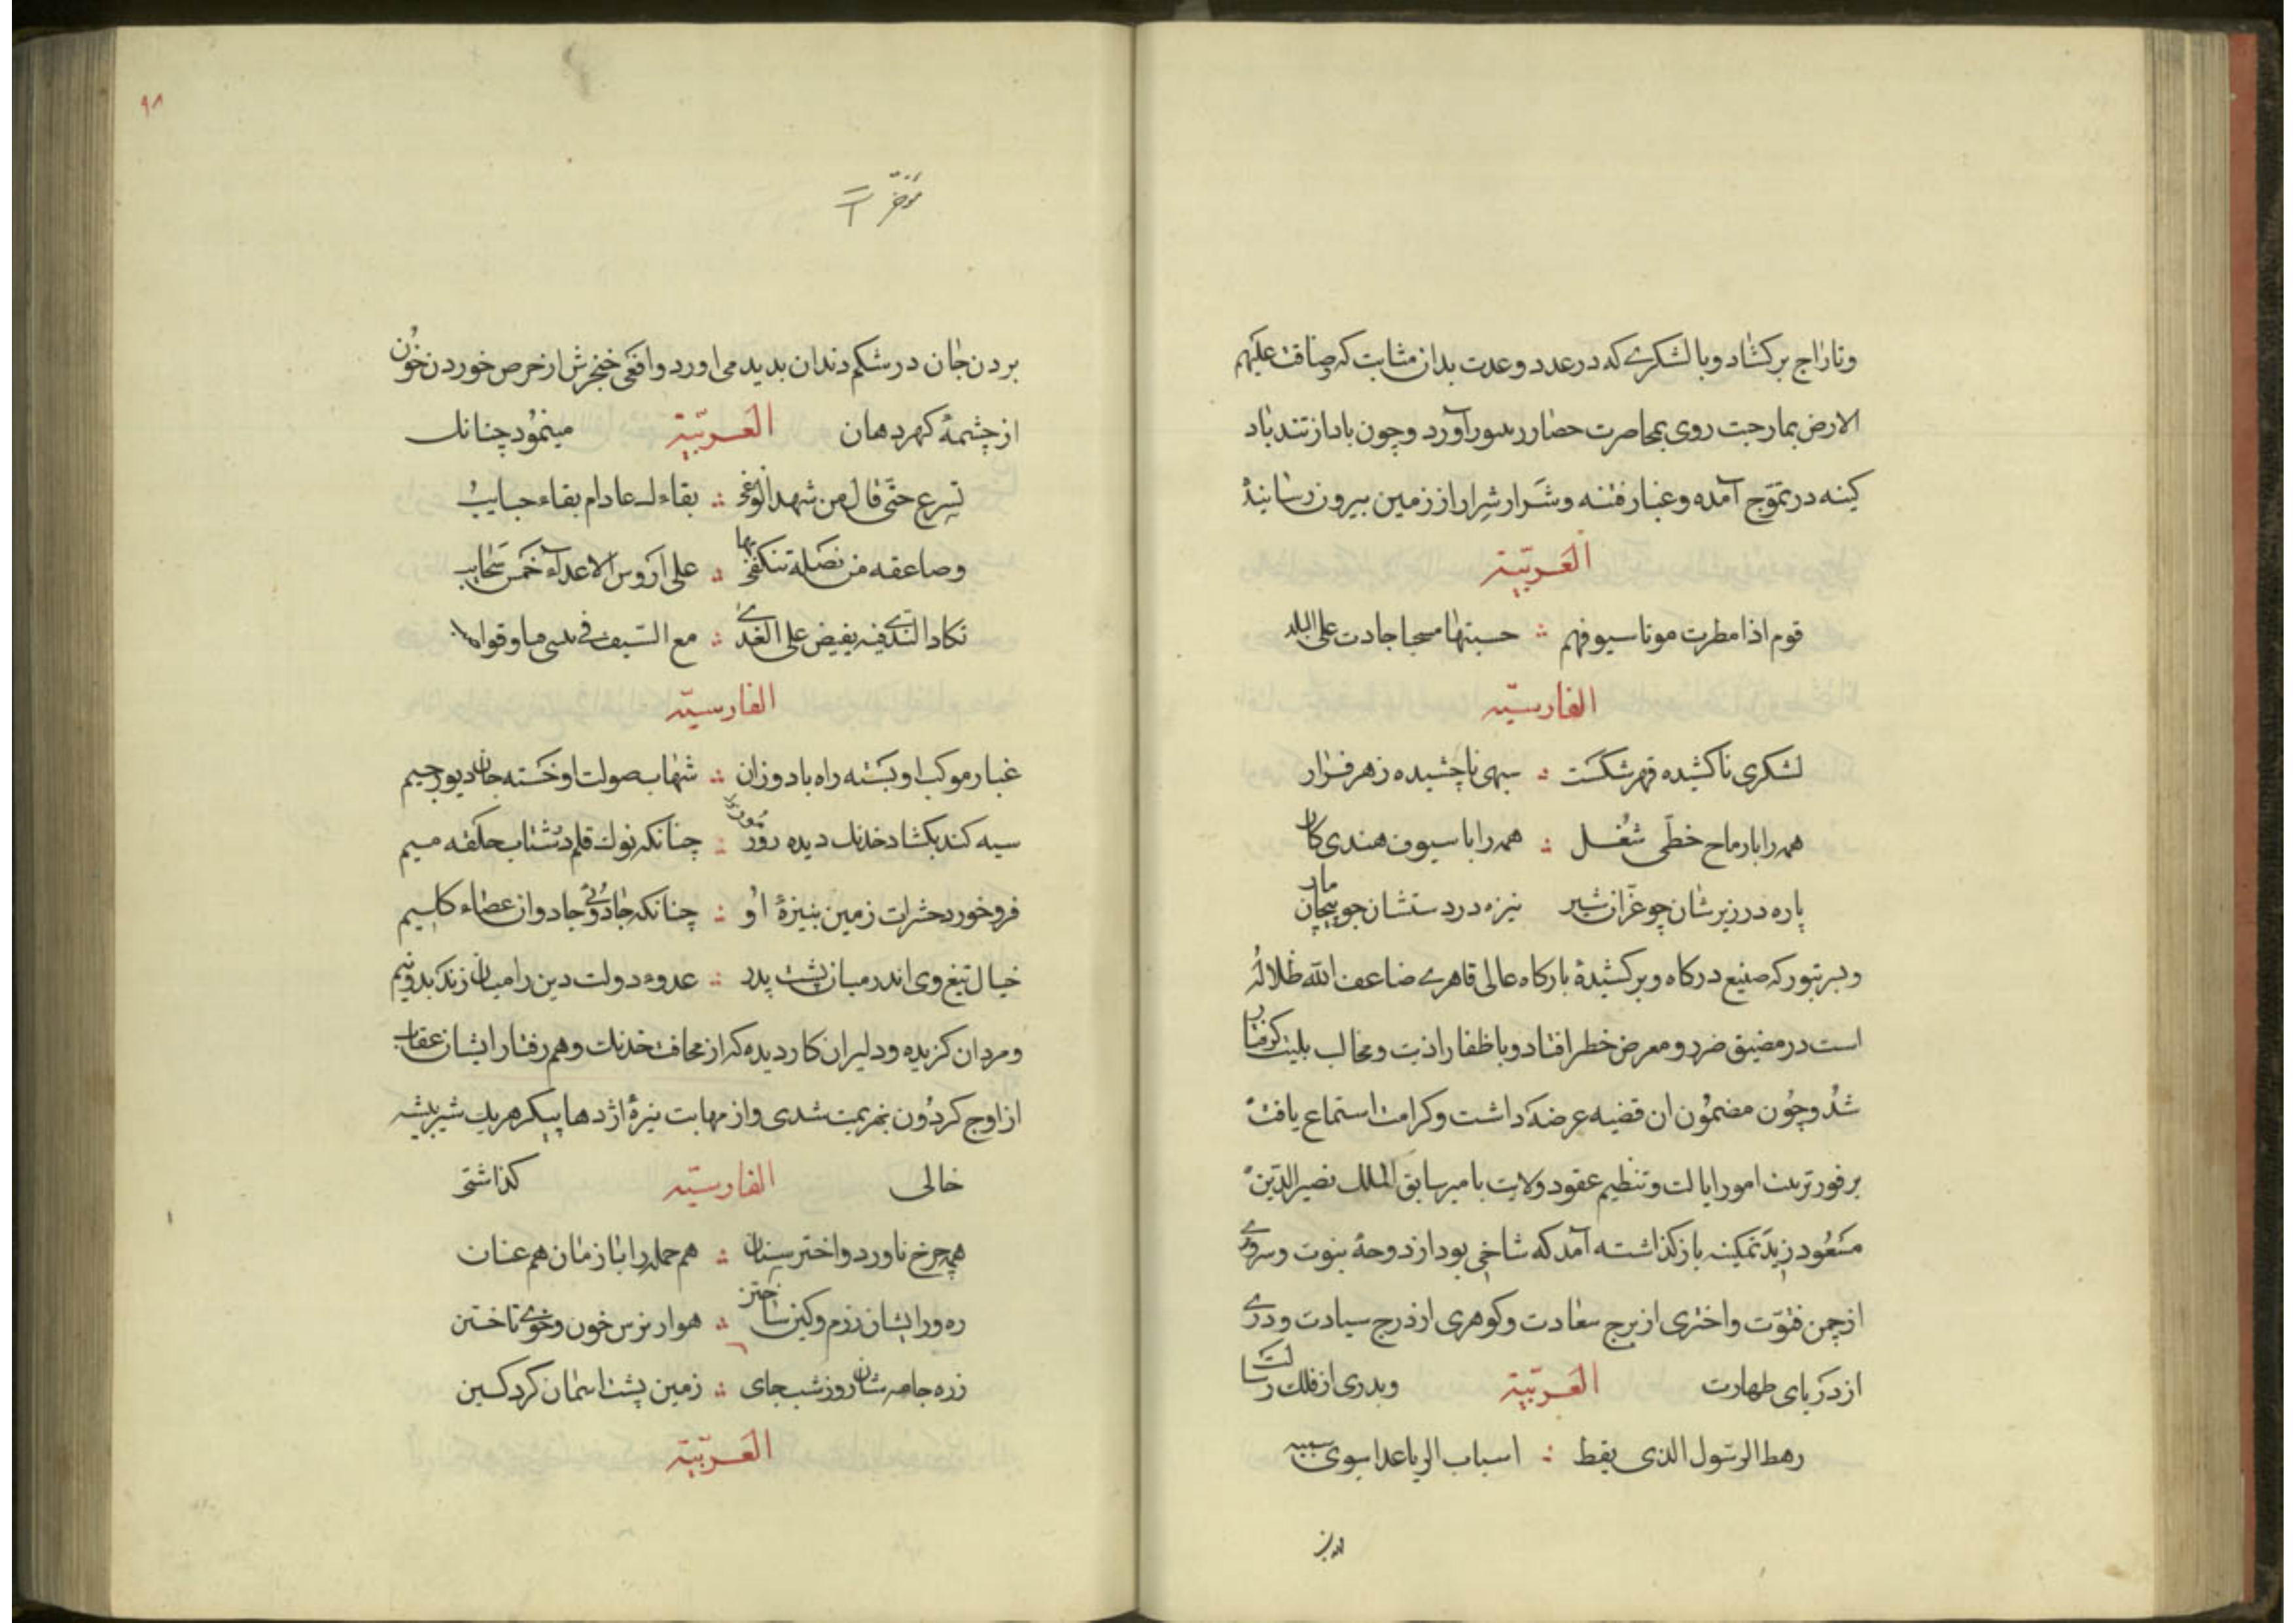 وتاراج بركشاد وبا لشكرى كه در عدد وعدت بدان مثابت كه وضاقت عليهم
الارض بما رحبت روى بمحاصرت حصار رسور آورد وچون باد از تندباد
كينه در تموّج آمده وغبار فتنه وشرار شرار از زمين بيرون رسانيد
العَربيّة
قوم اذا مطرت موتا سيوفهم ∴ حسبتها سحبا جادت على البلد
الفارسيّة
لشكرى ناكشيده قهر شكست ∴ سپهى ناچشيده زهر فرار
همه را با رماح خطّى شغل ∴ همه را با سيوف هندى كار
پاره در زيرشان چو غرّان شير نيزه در دستشان چو پيچان مار
وبر تبور كه صنيع دركاه وبركشيدهٔ باركاه عالى قاهرى ضاعف الله ظلاله
است در مضيق ضرر ومعرض خطر افتاد وباظفار اذيت ومخالب بليت كرفتار
شد وچون مضمون ان قضيه عرضه داشت وكرامت استماع يافت
بر فور تربيت امور ايالت وتنظيم عقود ولايت با مير سابق الملك نصير الدين
مسعود زيد تمكينه باز كذاشته آمد كه شاخى بود از دوحهٔ نبوت وسروى
از چمن فتوّت واخترى از برج سعادت وكوهرى از درج سيادت ودرى
از درياى طهارت العَربيّة وبدرى از فلك رسالت
رهط الرسول الذى يقط ∴ اسباب البرايا عدا سوى سببه
بردن جان در شكم دندان بديد مى اورد وافعى خنجرش از حرص خوردن خون
از چشمهٔ كهر دهان العَربيّة مينمود چنانك
تسرع حتّى قال من شهد الوغى ∴ بقاء لـ عادام بقاء حبايب
وصاعقه من نصله تنكفى بها ∴ على اروس الاعداء خمس سحايب
تكاد الندى فيه يفيض على الغدى ∴ مع السيف فى
الفارسيّة
غبار موكب او بسته راه باد وزان ∴ شهاب صولت او خسته جان ديو رجيم
سيه كند بكشاد خدنك ديده ∴ چنانكه نوك قلم حلقه ميم
فرو خورد حشرات زمين بنيزهٔ او ∴ چنانكه جادوى جادوان عصاء كليم
خيال تيغ وى اندر ميان پشت پدر ∴ عدوء دولت دين را ميان زند بدونيم
ومردان كزيده ودليران كار ديده كه از مخافت خدنك وهم رفتار ايشان عقاب
از اوج كردون بهزيمت شدى واز مهابت نيزهٔ اژدها پيكر هر يك شير بيشه
خالى الفارسيّة كذاشتى
همه چرخ ناورد واختر سنان ∴ هم حمله را با زمان هم عنان
ره ورايشان رزم وكين ساختن ∴ هوار خون وخوى تاختن
زره جامه شان روز شب جاى ∴ زمين پشت اسمان كرد كسين
العَربيّة